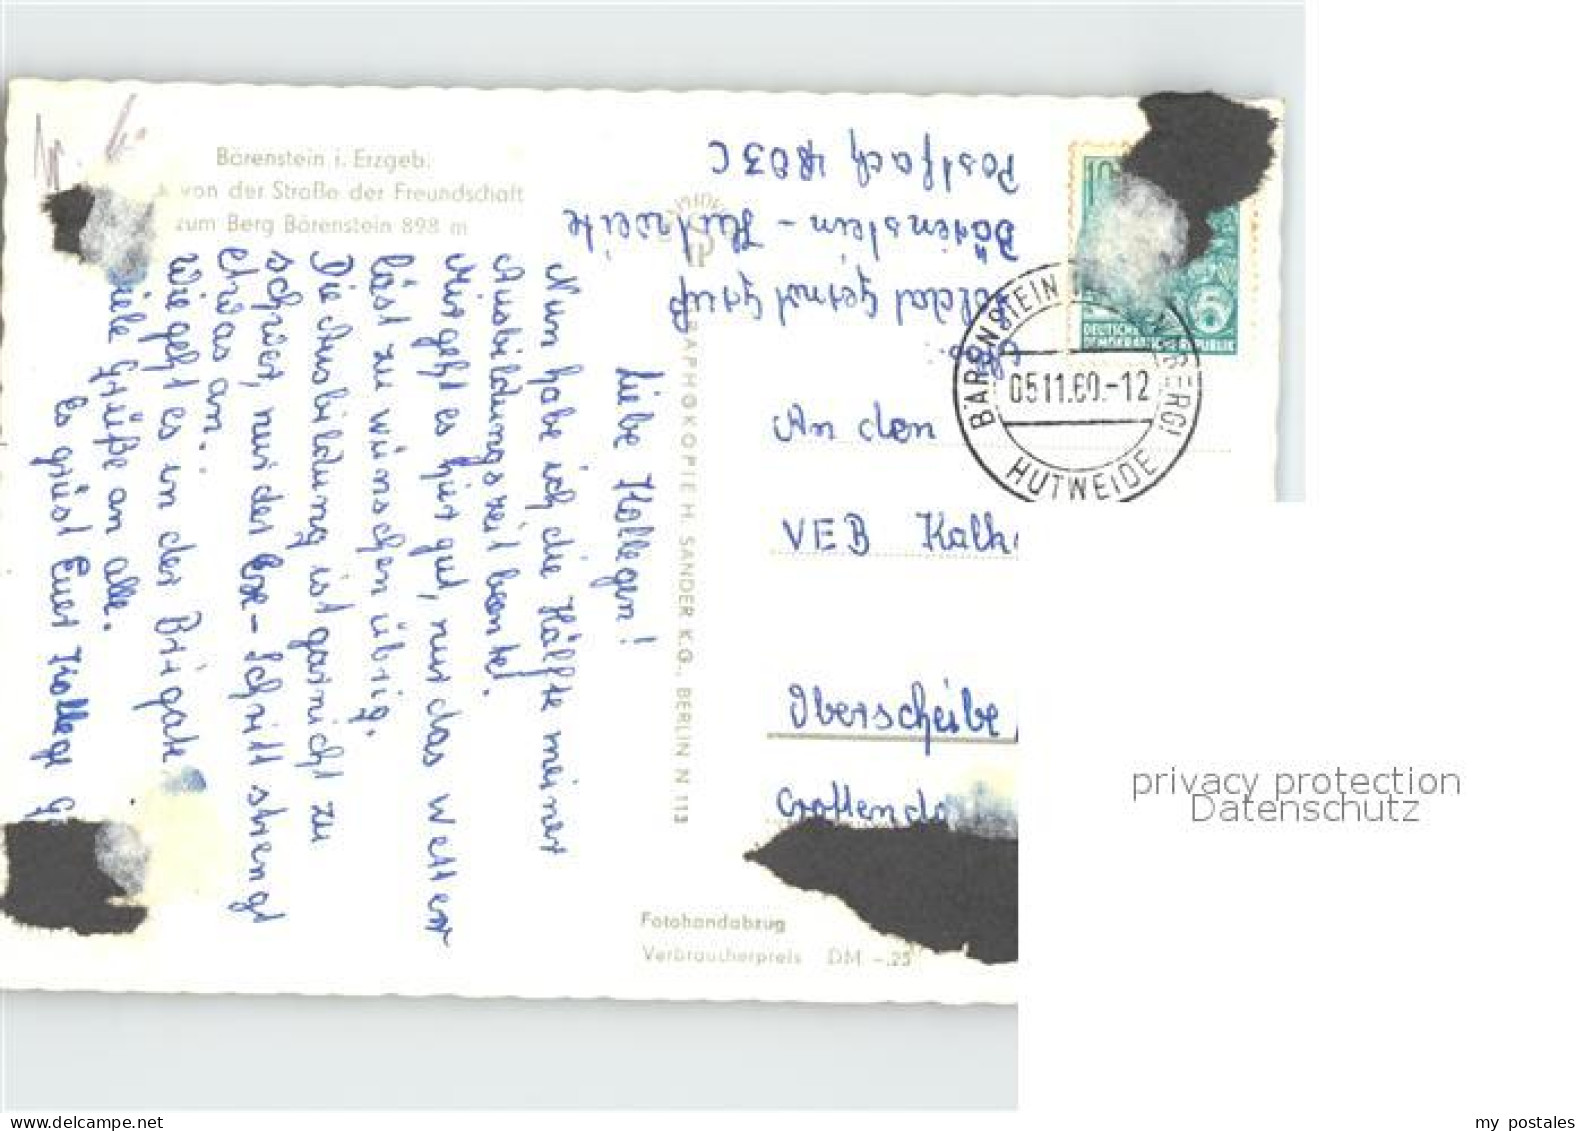 Bärenstein i. Erzgeb.
von der Straße der Freundschaft
zum Berg Bärenstein 898 m
Liebe Kollegen!
Nun habe ich die Hälfte meiner
Ausbildungszeit
Mir geht es hier gut, nur das Wetter
läst zu wünschen übrig.
Die Ausbildung ist garnicht zu
schwer, nur der Exe-Schritt strengt
etwas an..
Wie geht es in der Brigade
Viele Grüße an alle.
Es grüst Euer Kollege
GRAPHOKOPIE H. SANDER K.G., BERLIN N 113
Abs:
Soldat Gernot
Bärenstein - Hutweide
Postfach 4803 C
10
5
DEUTSCHE
DEMOKRATISCHE REPUBLIK
BÄRENSTEIN
05.11.60.-12
HUTWEIDE
An den
VEB Kalk
Oberscheibe
Crottendo
Fotohandabzug
Verbraucherpreis DM -.25
privacy protection
Datenschutz
my postales